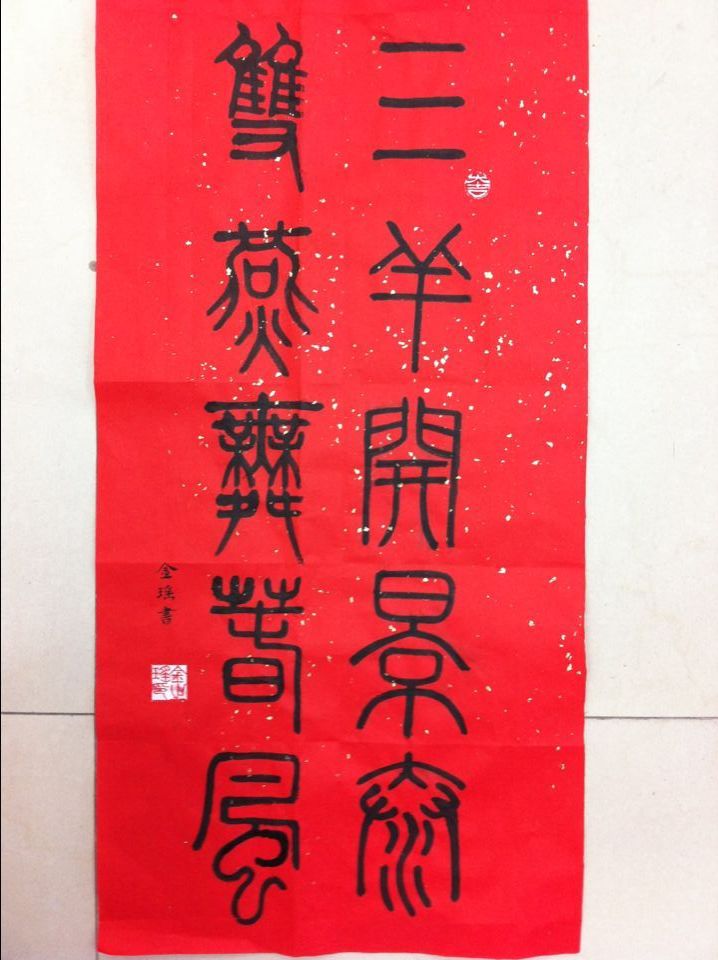 三羊開景泰
雙燕舞春風
金瑤書